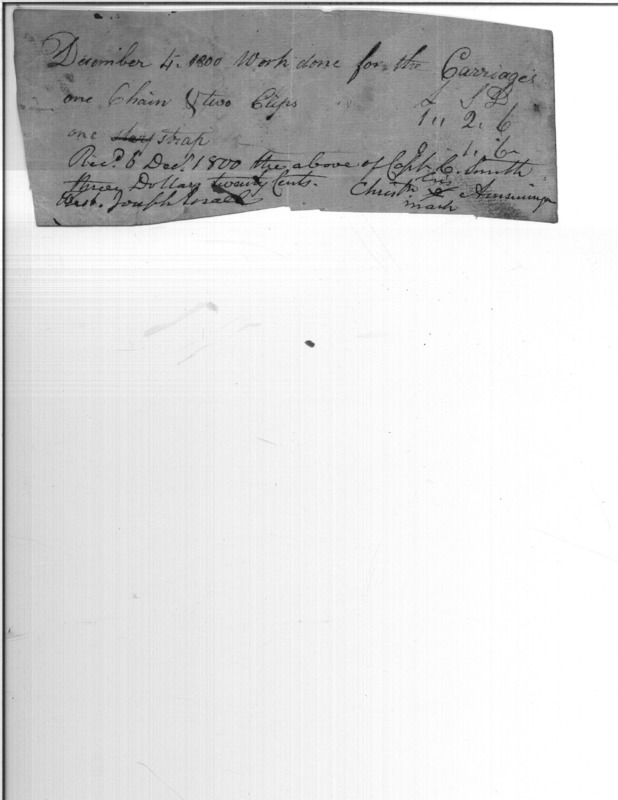 December 4. 1800 Work done for the Carriages
one Chain & two Clips £ S D
1 " 2. 6
one strap 0. 1. 6
Recd. 6 Decr. 1800 the above of Capt. C. Smith
three Dollars twenty Cents. Christn his x
Test. Joseph Israel mark